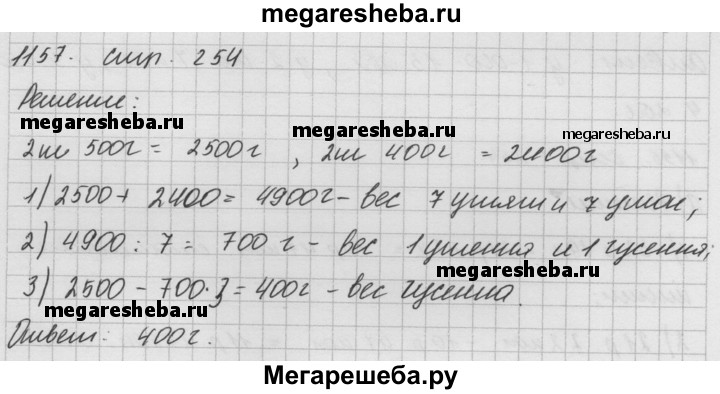 megaresheba.ru
1157. стр. 254
Решение:
megaresheba.ru megaresheba.ru megaresheba.ru
2кг 500г = 2500г , 2кг 400г = 2400г
1) 2500 + 2400 = 4900г - вес 7 утят и 7 гусят;
2) 4900 : 7 = 700 г - вес 1 утенка и 1 гусенка;
megaresheba.ru
3) 2500 - 700·3 = 400г - вес гусенка.
megaresheba.ru
Ответ: 400г.
megaresheba.ru
Мегарешеба.ру